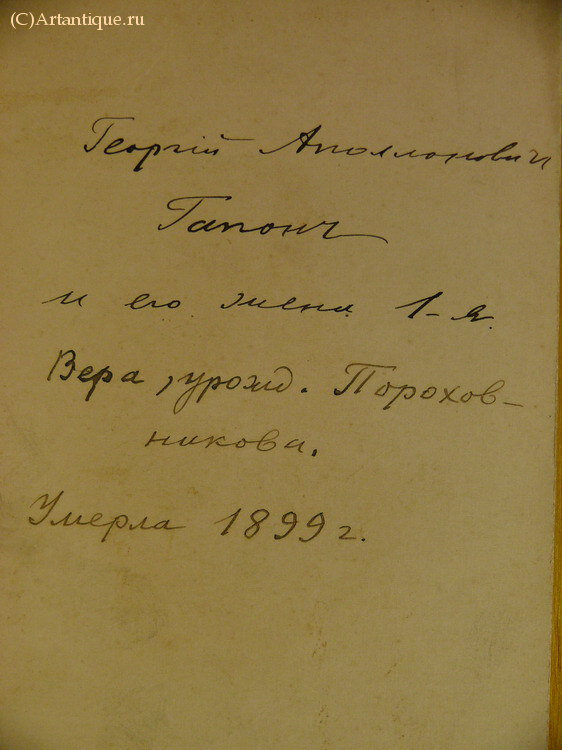 (C)Artantique.ru
Георгій Аполлоновичъ
Гапонъ
и его жена 1-я.
Вера, урожд. Порохов-
никова.
Умерла 1899 г.